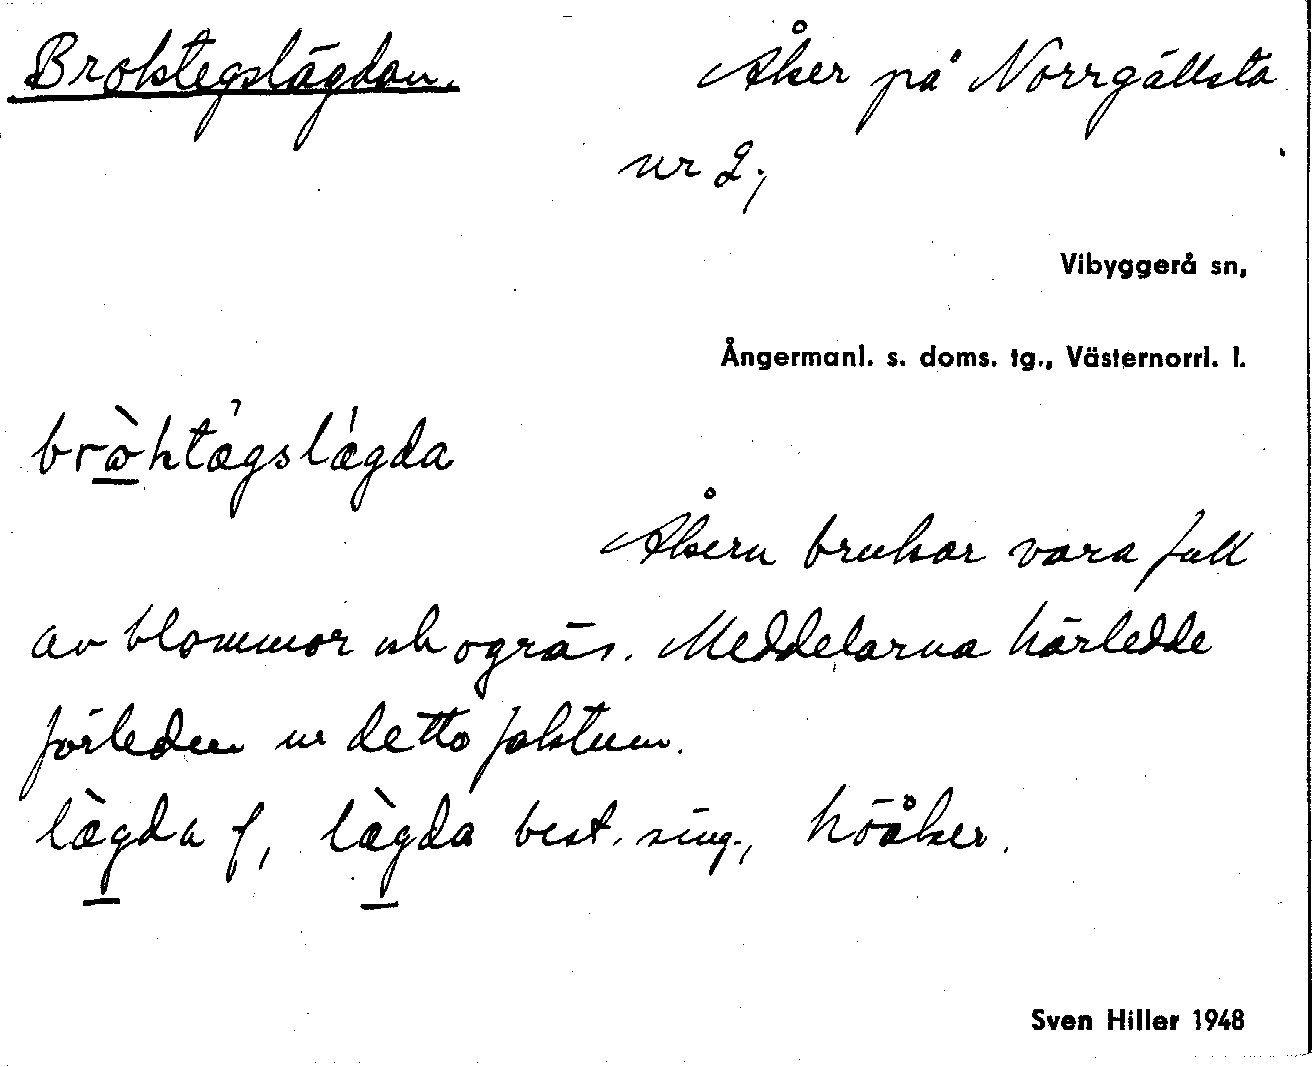 Broktegslägdan. Åker på Norrgällsta
nr 2;
Vibyggerå sn,
Ångermanl. s. doms. tg., Västernorrl. l.
bròktǽgslǽgda
Åkern brukar vara full
av blommor och ogräs. Meddelarna härledde
förleden ur detta faktum.
lægda f, lægda best. sing., höåker.
Sven Hiller 1948